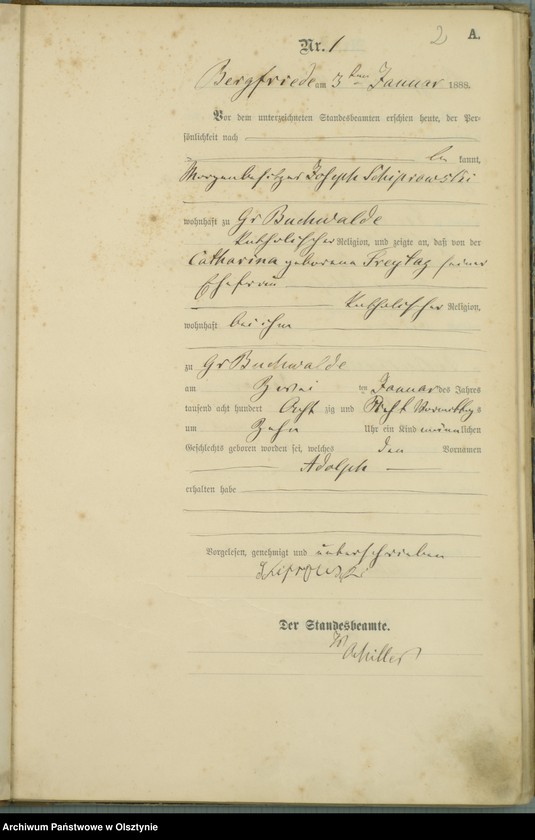 2 A.
Nr. 1
Bergfriede am 3ten Januar 1888.
Vor dem unterzeichneten Standesbeamten erschien heute, der Per-
sönlichkeit nach
be kannt,
Morgenbesitzer Joseph Schiprowski
wohnhaft zu Gr Buchwalde
katholischer Religion, und zeigte an, daß von der
Catharina geborene Freytag seiner
Ehefrau
katholischer Religion,
wohnhaft bei ihm
zu Gr Buchwalde
am Zwei ten Januar des Jahres
tausend acht hundert Acht zig und Acht Vormittags
um Zehn Uhr ein Kind männlichen
Geschlechts geboren worden sei, welches den Vornamen
Adolph
erhalten habe
Vorgelesen, genehmigt und unterschrieben
Der Standesbeamte.
Schiller
Archiwum Państwowe w Olsztynie